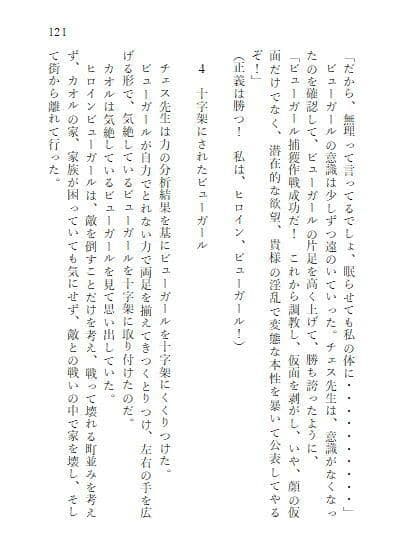 121
「だから、無理って言ってるでしょ、眠らせても私の体に・・・・・・・・・」
ビューガールの意識は少しずつ遠のいていった。チェス先生は、意識がなくなっ
たのを確認して、ビューガールの片足を高く上げて、勝ち誇ったように、
「ビューガール捕獲作戦成功だ！　これから調教し、仮面を剥がし、いや、顔の仮
面だけでなく、潜在的な欲望、貴様の淫乱で変態な本性を暴いて公表してやる
ぞ！」
（正義は勝つ！　私は、ヒロイン、ビューガール！）
4　十字架にされたビューガール
チェス先生は力の分析結果を基にビューガールを十字架にくくりつけた。
ビューガールが自力でとれない力で両足を揃えてきつくとりつけ、左右の手を広
げる形で、気絶しているビューガールを十字架に取り付けたのだ。
カオルは気絶しているビューガールを見て思い出していた。
ヒロインビューガールは、敵を倒すことだけを考え、戦って壊れる町並みを考え
ず、カオルの家、家族が困っていても気にせず、敵との戦いの中で家を壊し、そし
て街から離れて行った。